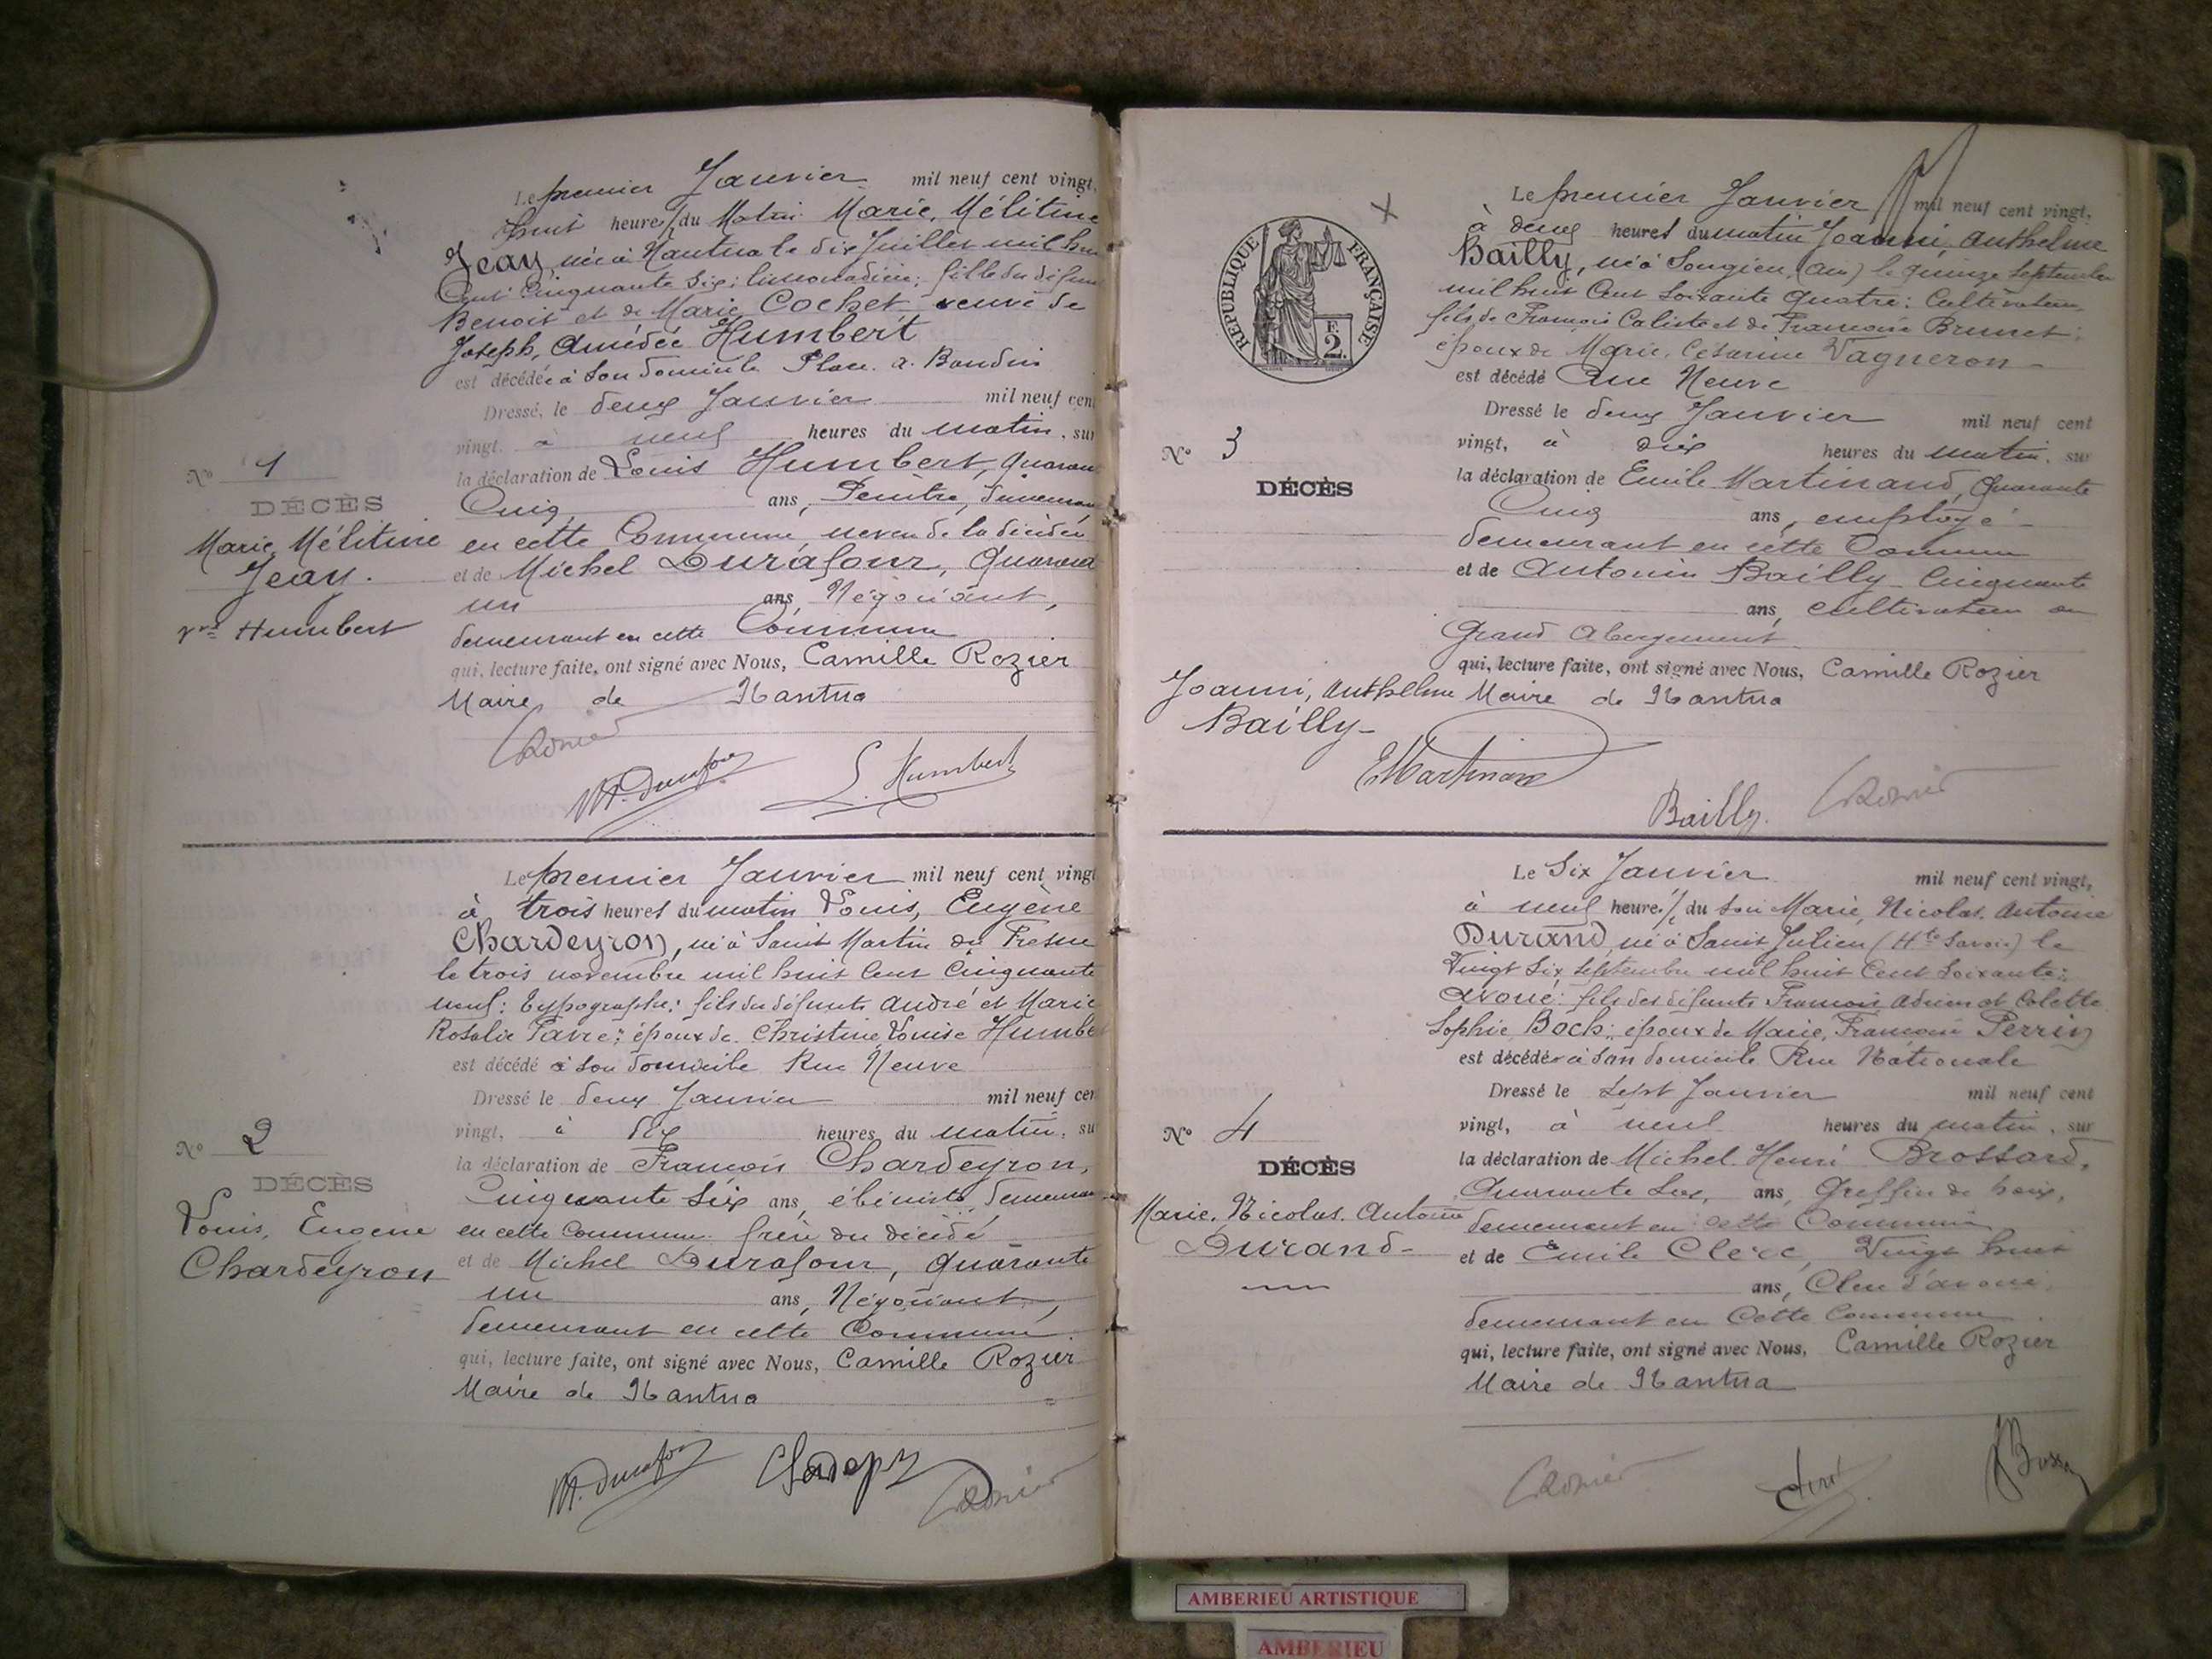 Le premier Janvier mil neuf cent vingt,
huit heures ½ du Matin Marie, Mélitine
Jeay, née à Nantua le dix Juillet mil hui
Cent Cinquante Six; limonadière; fille du défun
Benoit et de Marie Cochet veuve de
Joseph, Amédée Humbert
est décédée à son domicile Place. a. Baudin
Dressé, le deux Janvier mil neuf cen
vingt, à neuf heures du matin, sur
la déclaration de Louis Humbert, Quaran
Cinq ans, Peintre, demeuran
en cette Commune, neveu de la décédée
et de Michel Durafour, Quarant
un ans, Négociant,
demeurant en cette Commune
qui, lecture faite, ont signé avec Nous, Camille Rozier
Maire de Nantua
M. Durafour L. Humbert
N° 1
DÉCÈS
Marie, Mélitine
Jeay.
vve Humbert
Le premier Janvier mil neuf cent vingt
à trois heures du matin Louis, Eugène
Chardeyron, né à Saint Martin du Fresne
le trois novembre mil huit Cent Cinquante
neuf: typographe; fils des défunts André et Marie
Rosalie Favre; époux de Christine, Louise Humbe
est décédé à son domicile Rue Neuve
Dressé le deux Janvier mil neuf cen
vingt, à dix heures du matin, su
la déclaration de François Chardeyron,
Cinquante Six ans, ébéniste, demeuran
en cette Commune frère du décédé
et de Michel Durafour, Quarante
un ans, Négociant,
demeurant en cette Commune
qui, lecture faite, ont signé avec Nous, Camille Rozier
Maire de Nantua
M. Durafour
N° 2
DÉCÈS
Louis, Eugène
Chardeyron
RÉPUBLIQUE FRANÇAISE
F.
2
Le premier Janvier mil neuf cent vingt,
à deux heures du matin Joanni, Anthelme
Bailly, né à Songieu (Ain) le quinze Septembre
mil huit Cent Soixante Quatre: Cultivateur
fils de François Caliste et de Françoise Brunet;
époux de Marie, Césarine Vagneron
est décédé Rue Neuve
Dressé le deux Janvier mil neuf cent
vingt, à dix heures du matin, sur
la déclaration de Emile Martinand, Quarante
Cinq ans, employé
demeurant en cette Commune
et de Antonin Bailly Cinquante
ans, cultivateur au
Grand Abergement
qui, lecture faite, ont signé avec Nous, Camille Rozier
Maire de Nantua
E Martinand
Bailly.
N° 3
DÉCÈS
Joanni, Anthelme
Bailly
Le Six Janvier mil neuf cent vingt,
à neuf heures ½ du soir Marie, Nicolas, Antoine
Durand né à Saint Julien (Hte Savoie) le
Vingt Six Septembre mil huit Cent Soixante;
avoué: fils des défunts François Adrien et Colette
Sophie Boch; époux de Marie, Françoise Perrin
est décédé à son domicile Rue Nationale
Dressé le sept Janvier mil neuf cent
vingt, à neuf heures du matin, sur
la déclaration de Michel Henri Brossard,
Quarante ans, Greffier de paix,
demeurant en cette Commune
et de Emile Clerc, Vingt huit
ans, Clerc d'avoué
demeurant en Cette Commune
qui, lecture faite, ont signé avec Nous, Camille Rozier
Maire de Nantua
N° 4
DÉCÈS
Marie. Nicolas. Antoine
Durand
AMBERIEU ARTISTIQUE
AMBERIEU